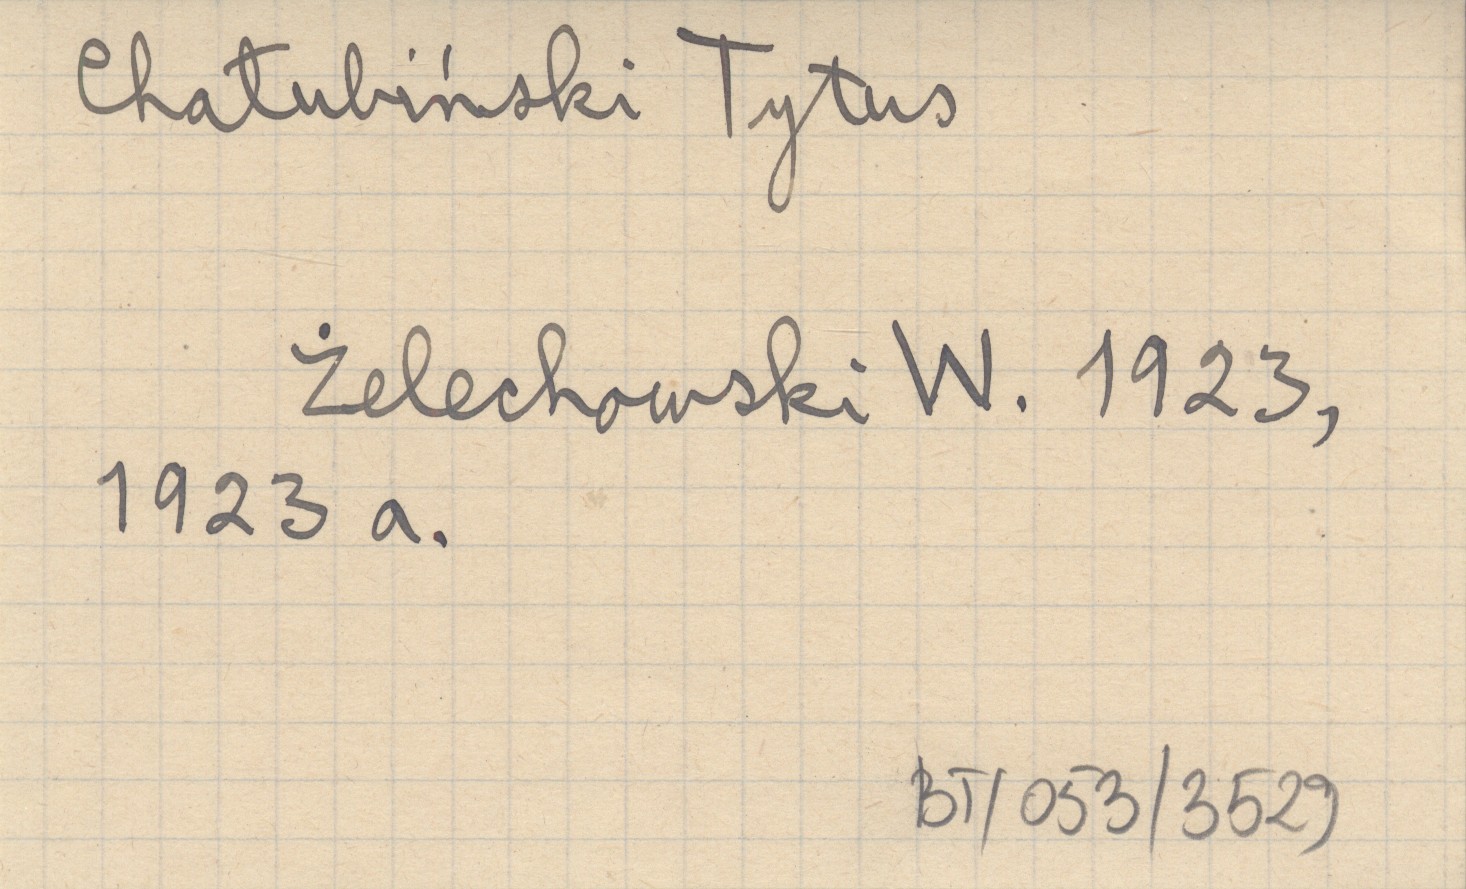 Chałubiński Tytus
Żelechowski W. 1923,
1923 a.
BT/053/3529